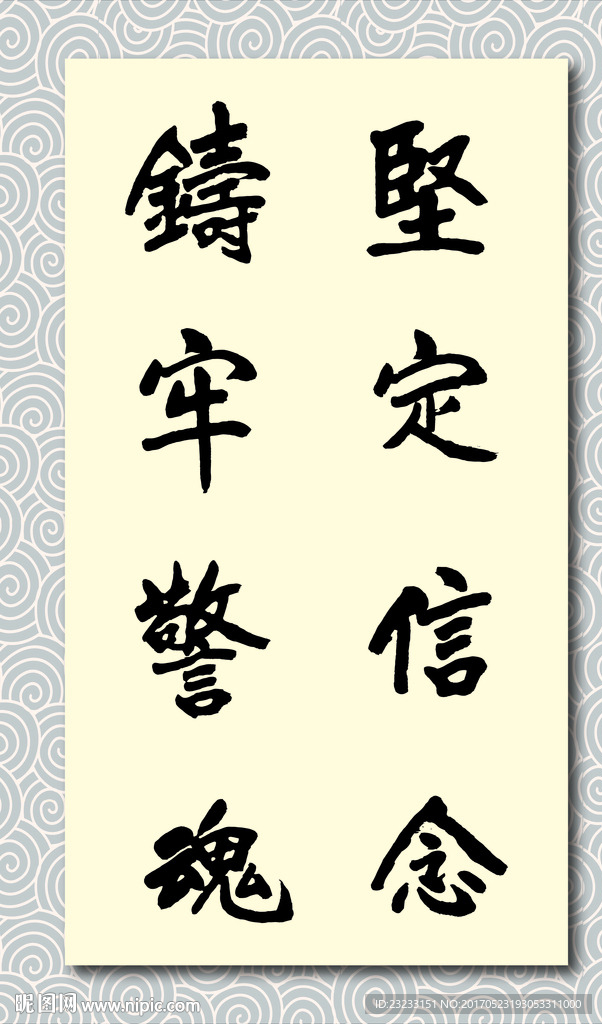 堅定信念
鑄牢警魂
昵图网 www.nipic.com
ID:23233151 NO:20170523193053311000